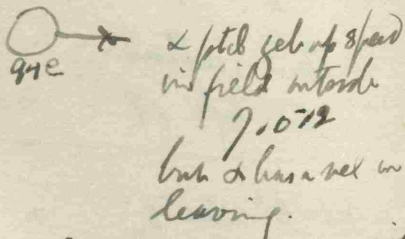 α ptcl gets up speed
in field outside
but α has a vel on
leaving.